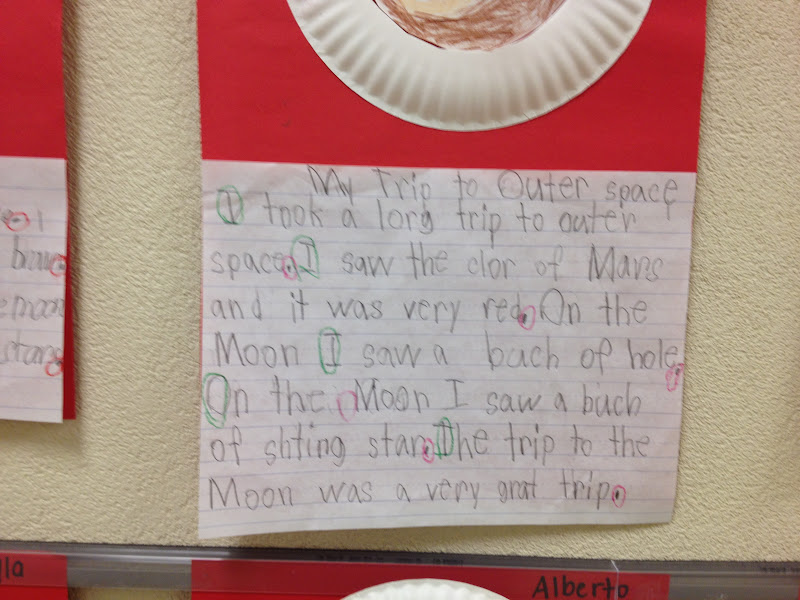 My Trip to Outer space
I took a lorg trip to outer
space. I saw the clor of Mars
and it was very red. On the
Moon I saw a buch of hole.
On the Moon I saw a buch
of shting star. The trip to the
Moon was a very grat trip.
Alberto
lla